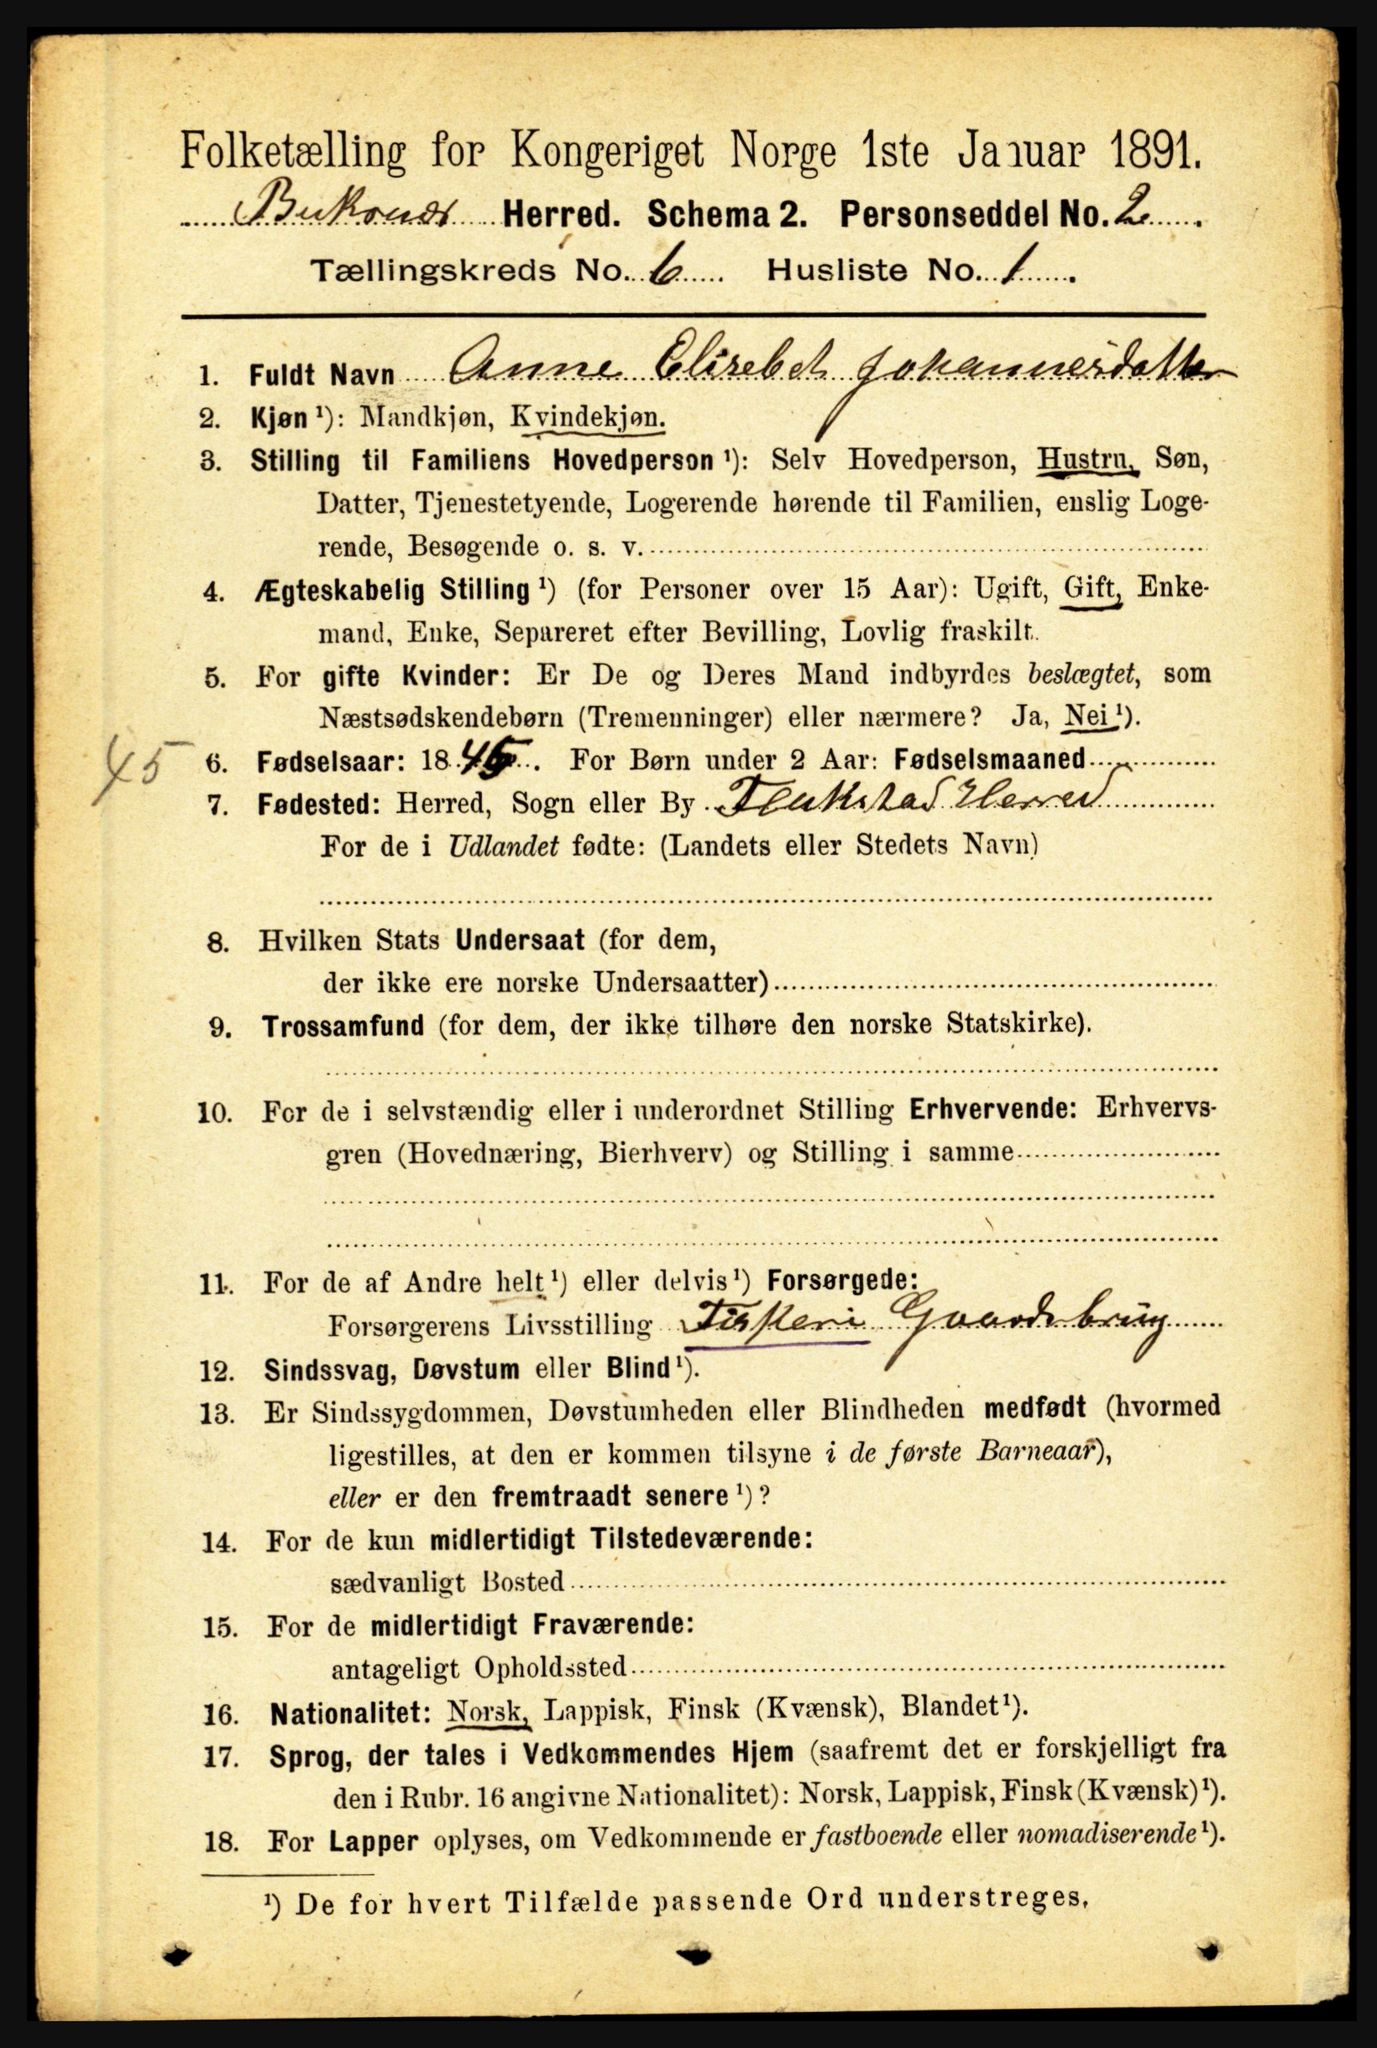 Folketælling for Kongeriget Norge 1ste Januar 1891.
Buksnes Herred. Schema 2. Personseddel No. 2.
Tællingskreds No. 6 Husliste No. 1.
1. Fuldt Navn Anne Elisebet Johannesdatter
2. Kjøn ¹): Mandkjøn, Kvindekjøn.
3. Stilling til Familiens Hovedperson ¹): Selv Hovedperson, Hustru, Søn,
Datter, Tjenestetyende, Logerende hørende til Familien, enslig Loge-
rende, Besøgende o. s. v.
4. Ægteskabelig Stilling ¹) (for Personer over 15 Aar): Ugift, Gift, Enke-
mand, Enke, Separeret efter Bevilling, Lovlig fraskilt.
5. For gifte Kvinder: Er De og Deres Mand indbyrdes beslægtet, som
Næstsødskendebørn (Tremenninger) eller nærmere? Ja, Nei ¹).
45 6. Fødselsaar: 1845. For Børn under 2 Aar: Fødselsmaaned
7. Fødested: Herred, Sogn eller By Flakstad Herred
For de i Udlandet fødte: (Landets eller Stedets Navn)
8. Hvilken Stats Undersaat (for dem,
der ikke ere norske Undersaatter)
9. Trossamfund (for dem, der ikke tilhøre den norske Statskirke).
10. For de i selvstændig eller i underordnet Stilling Erhvervende: Erhvervs-
gren (Hovednæring, Bierhverv) og Stilling i samme
11. For de af Andre helt ¹) eller delvis ¹) Forsørgede:
Forsørgerens Livsstilling Fiskeri Gaardsbrug
12. Sindssvag, Døvstum eller Blind ¹).
13. Er Sindssygdommen, Døvstumheden eller Blindheden medfødt (hvormed
ligestilles, at den er kommen tilsyne i de første Barneaar),
eller er den fremtraadt senere ¹)?
14. For de kun midlertidigt Tilstedeværende:
sædvanligt Bosted
15. For de midlertidigt Fraværende:
antageligt Opholdssted
16. Nationalitet: Norsk, Lappisk, Finsk (Kvænsk), Blandet ¹).
17. Sprog, der tales i Vedkommendes Hjem (saafremt det er forskjelligt fra
den i Rubr. 16 angivne Nationalitet): Norsk, Lappisk, Finsk (Kvænsk) ¹).
18. For Lapper oplyses, om Vedkommende er fastboende eller nomadiserende ¹).
¹) De for hvert Tilfælde passende Ord understreges.